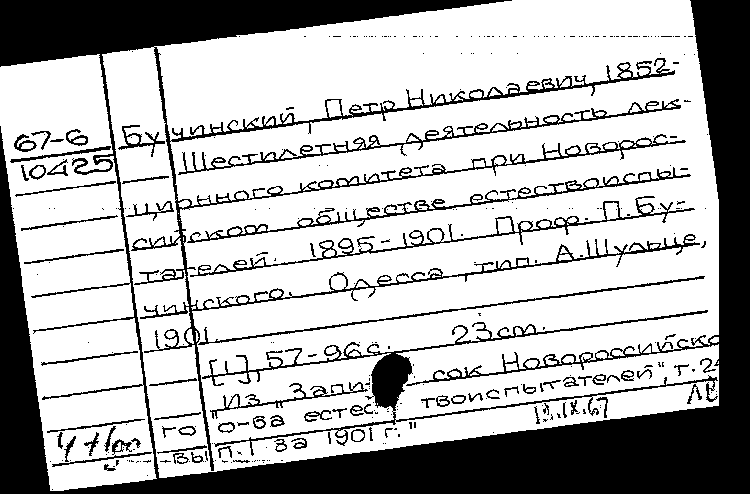 67-6
10425
Бучинский, Петр Николаевич, 1852-
Шестилетняя деятельность лек-
ционного комитета при Новорос-
сийском обществе естествоиспы-
тателей. 1895-1901. Проф. П. Бу-
чинского. Одесса, тип. А. Шульце,
1901.
[1], 57-96 с. 23 см.
"Из "Записок Новороссийско
го о-ва естествоиспытателей", т. 2
вып. 1 за 1901 г."
IX.67